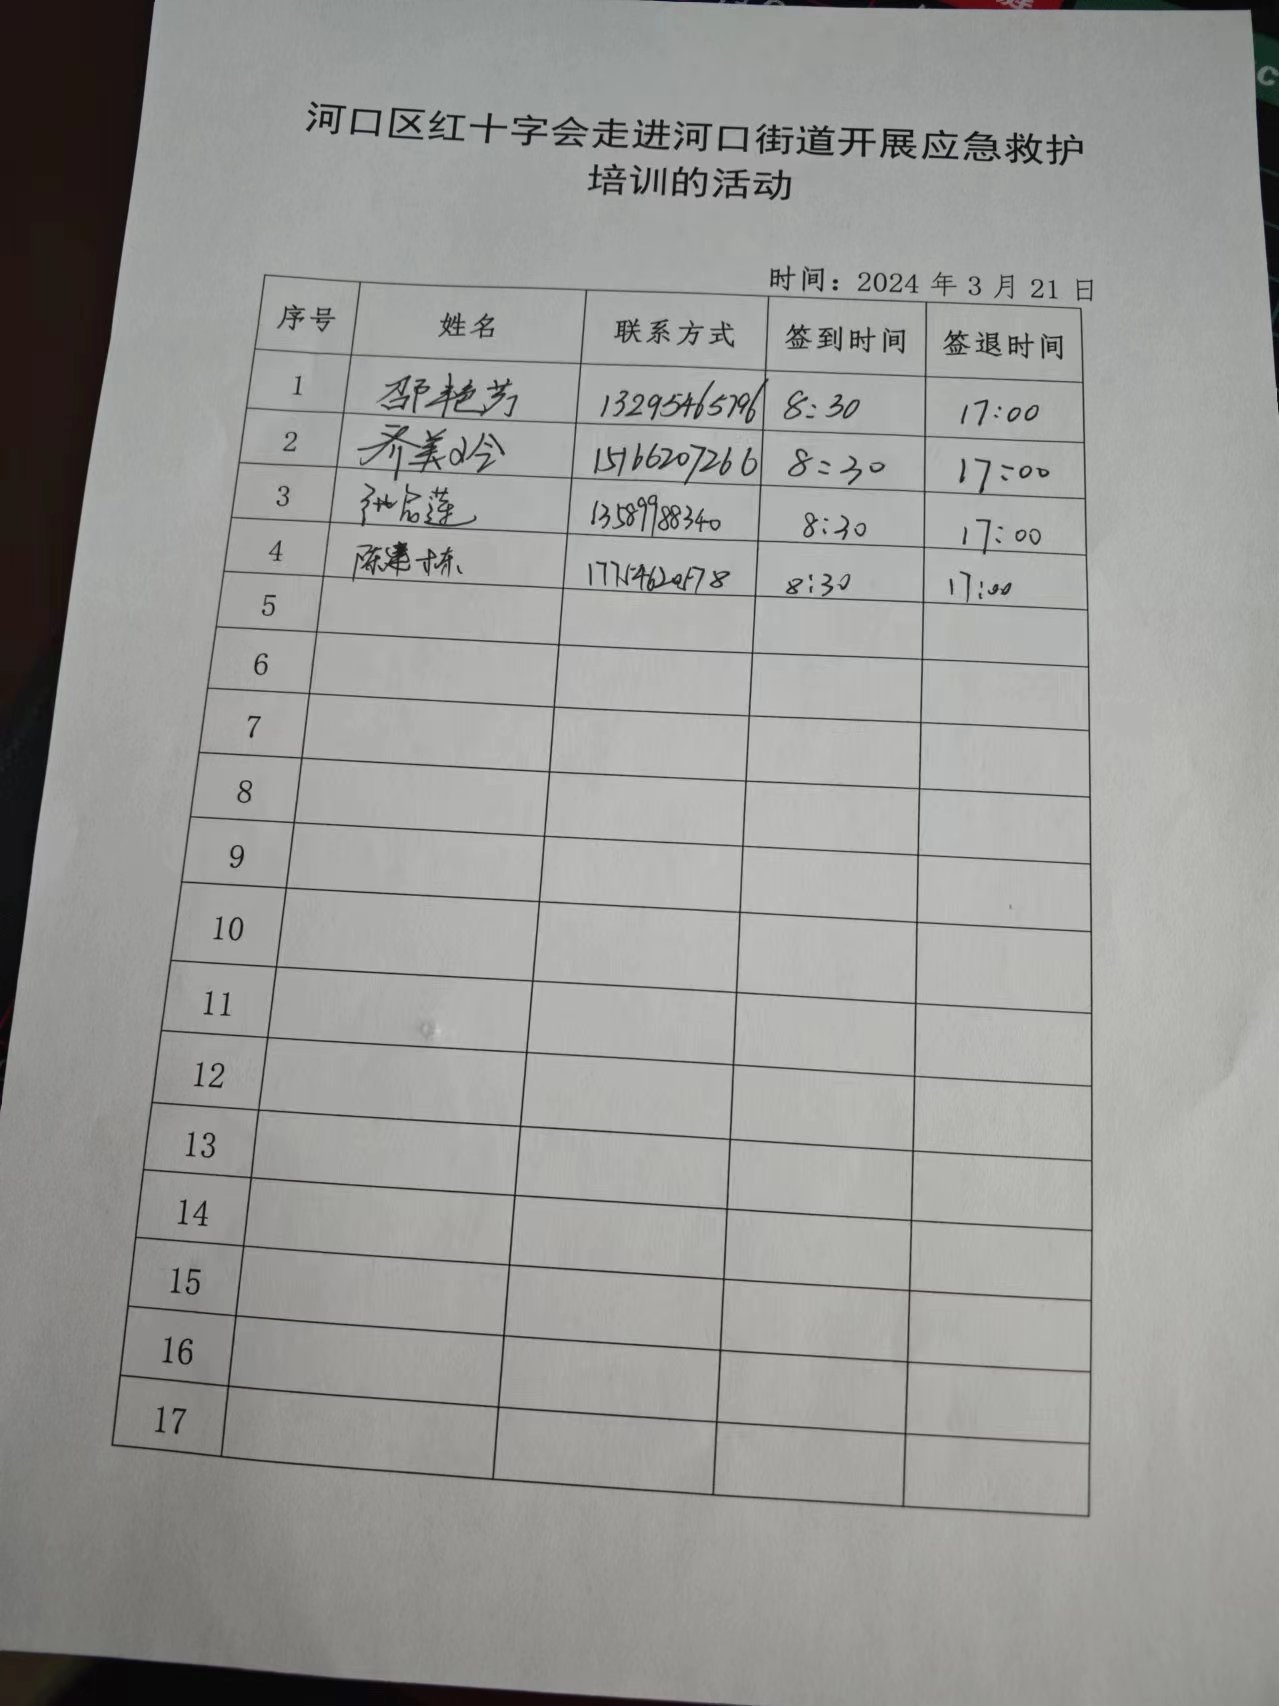 河口区红十字会走进河口街道开展应急救护
培训的活动
时间：2024 年 3 月 21 日
序号 姓名 联系方式 签到时间 签退时间
1 邵艳芳 13295465796 8:30 17:00
2 齐美玲 15166207266 8:30 17:00
3 13589988340 8:30 17:00
4 陈建栋 17754620578 8:30 17:00
5
6
7
8
9
10
11
12
13
14
15
16
17